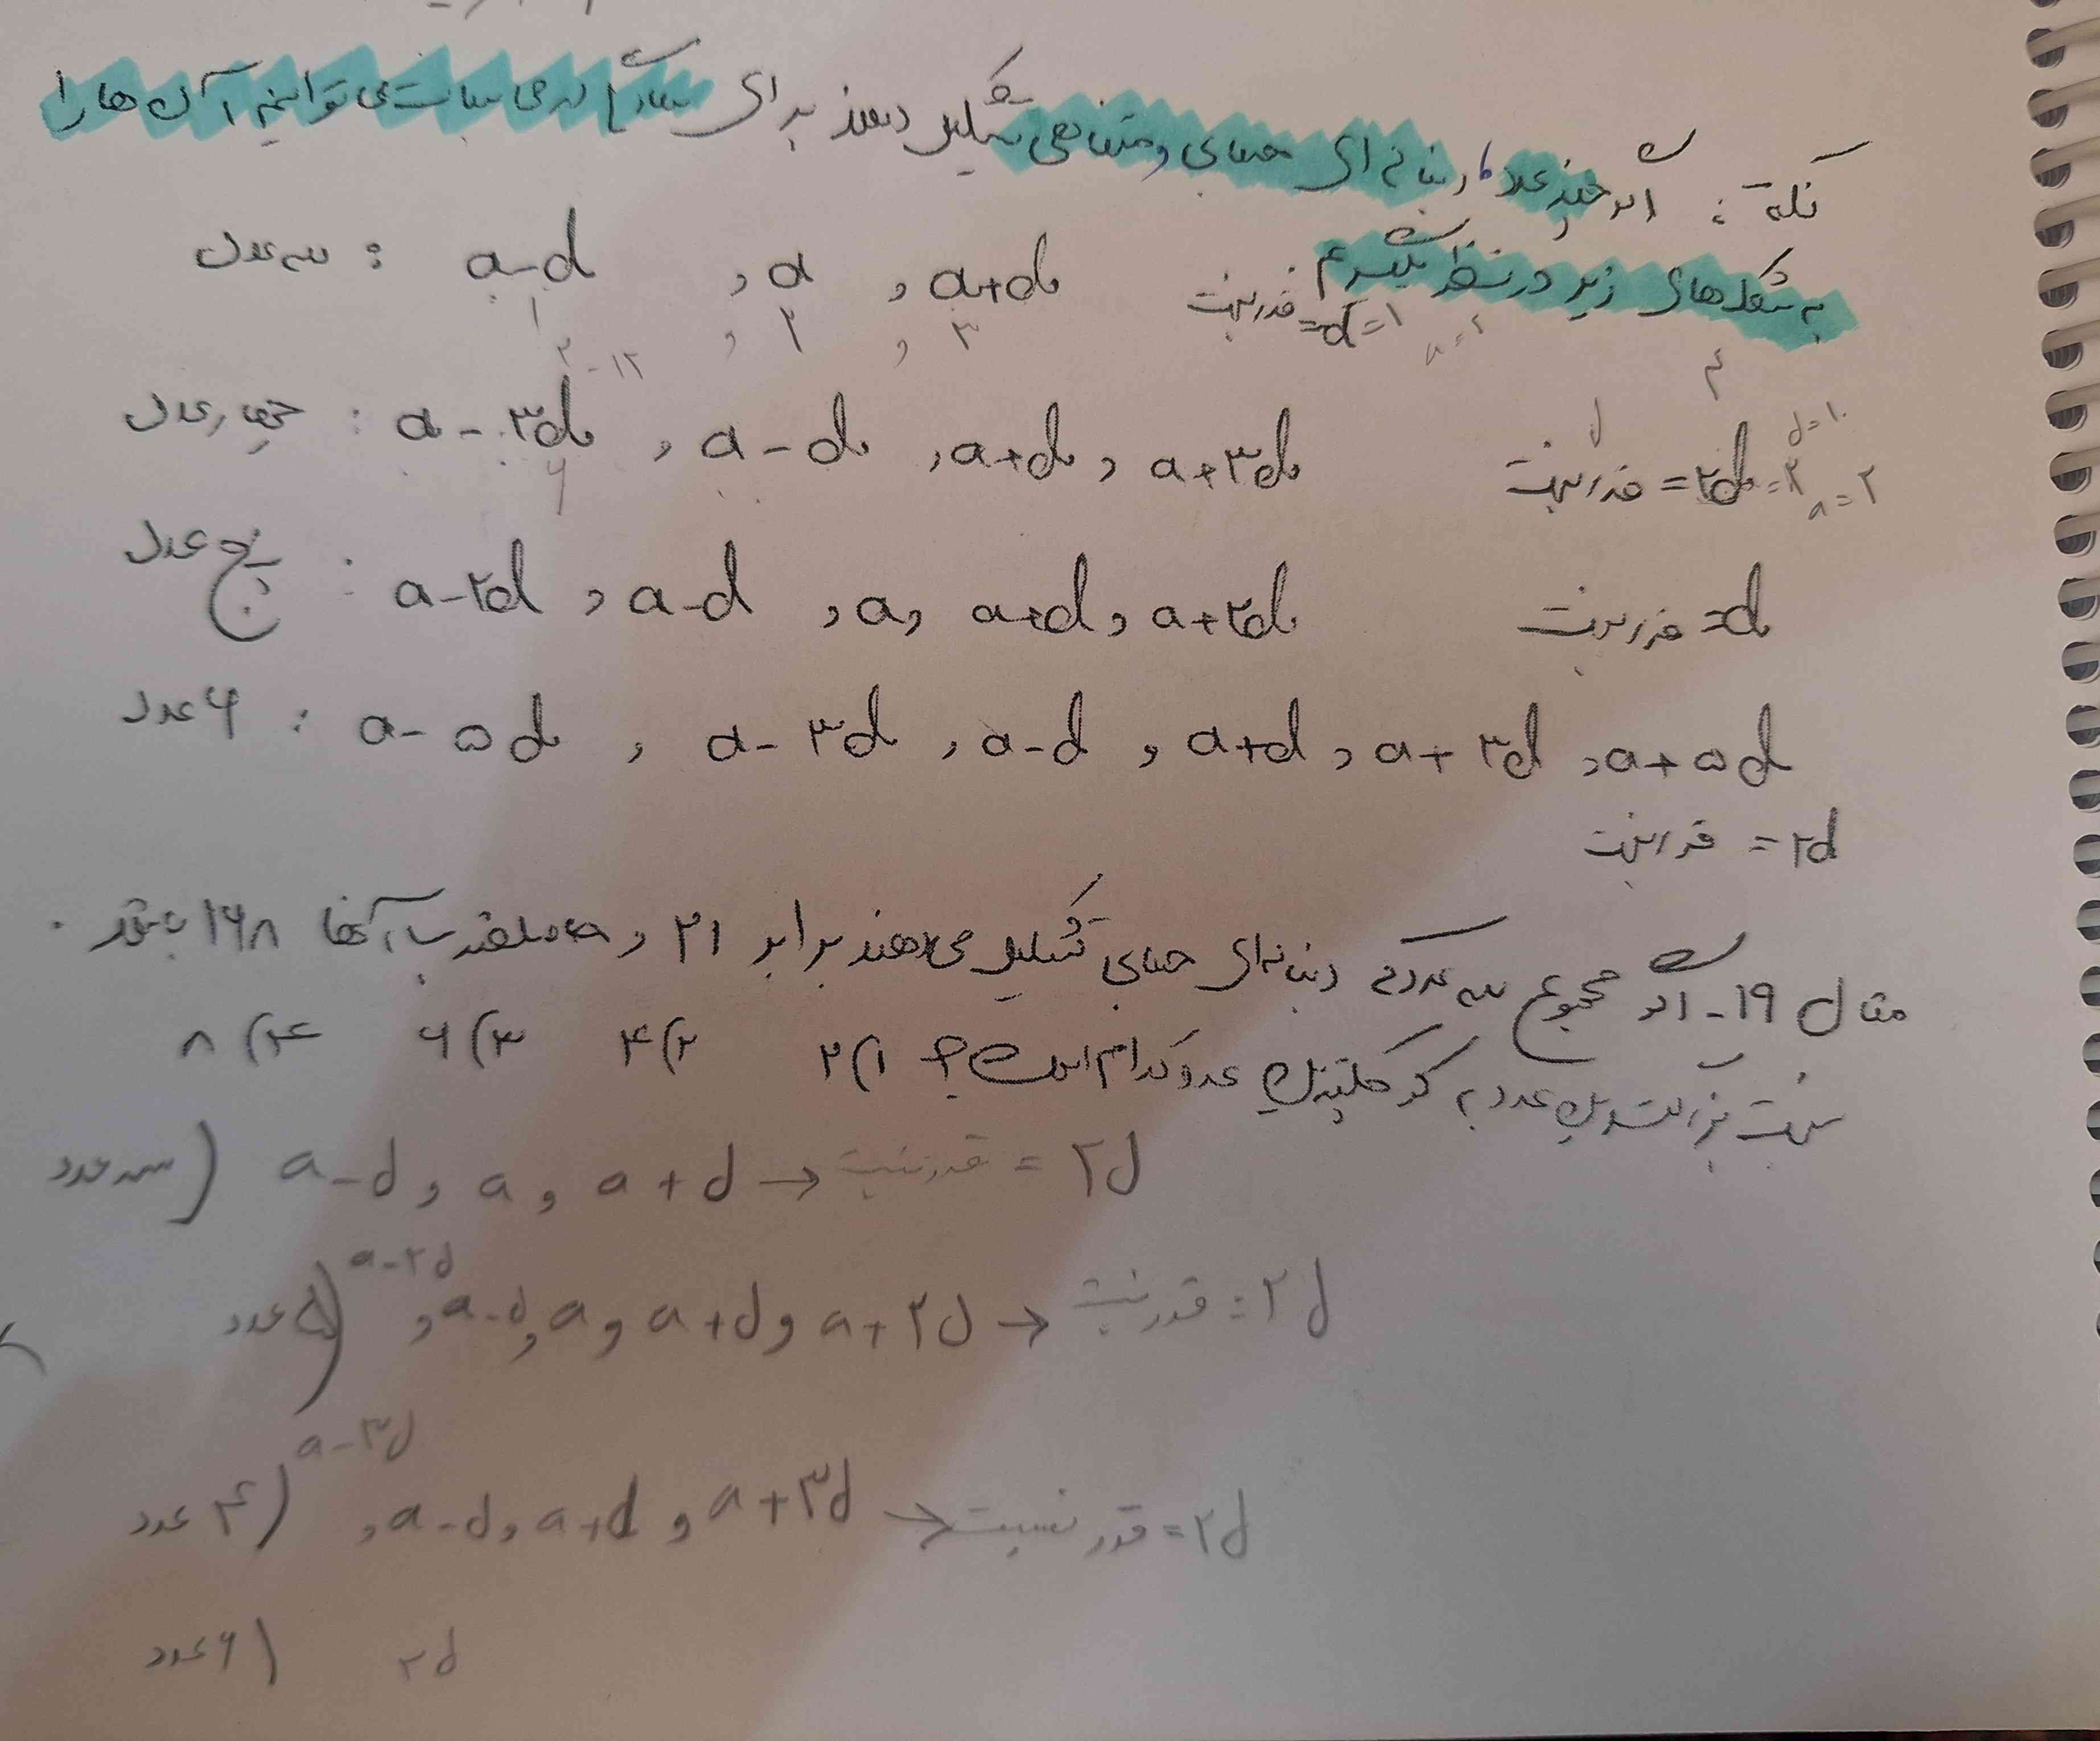 نکته : اگر چند عدد دنباله ای حسابی و متناهی تشکیل دهند برای سادگی در محاسبات می توانیم آن ها را
به شکل های زیر در نظر بگیریم
سه عدد : a-d , a , a+d قدر نسبت = d = ۱
۱ , ۲ , ۳
چهار عدد : a-۳d , a-d , a+d , a+۳d قدر نسبت = ۲d
d=۱۰
a=۲
پنج عدد : a-۲d , a-d , a , a+d , a+۲d قدر نسبت = d
۶ عدد : a-۵d , a-۳d , a-d , a+d , a+۳d , a+۵d
قدر نسبت = ۲d
مثال ۱۹- اگر مجموع سه عدد که دنباله ای حسابی تشکیل می دهند برابر ۲۱ و حاصلضرب آنها ۱۶۸ باشد .
نسبت بزرگترین عدد به کوچکترین عدد کدام است؟ ۱) ۲ ۲) ۴ ۳) ۶ ۴) ۸
سه عدد ) a-d , a , a+d → قدر نسبت = ۲d
۵ عدد ) a-۲d , a-d , a , a+d , a+۲d → قدر نسبت = ۲d
۴ عدد ) a-۳d , a-d , a+d , a+۳d → قدر نسبت = ۲d
۶ عدد ) ۲d